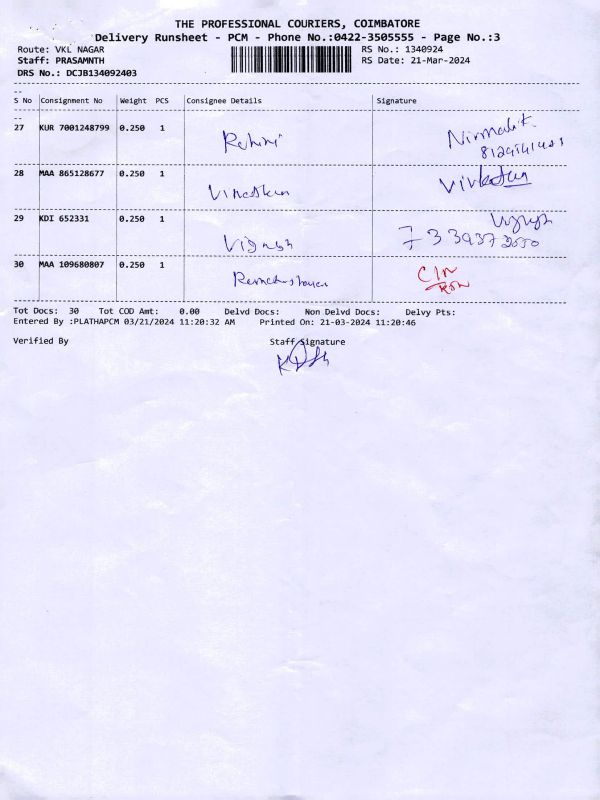 THE PROFESSIONAL COURIERS, COIMBATORE
Delivery Runsheet - PCM - Phone No.:0422-3505555 - Page No.:3
Route: VKL NAGAR RS No.: 1340924
Staff: PRASAMNTH RS Date: 21-Mar-2024
DRS No.: DCJB134092403
S No Consignment No Weight PCS Consignee Details Signature
27 KUR 7001248799 0.250 1 Rohini
28 MAA 865128677 0.250 1
29 KDI 652331 0.250 1 Vignesh
30 MAA 109680807 0.250 1
Tot Docs: 30 Tot COD Amt: 0.00 Delvd Docs: Non Delvd Docs: Delvy Pts:
Entered By :PLATHAPCM 03/21/2024 11:20:32 AM Printed On: 21-03-2024 11:20:46
Verified By Staff Signature